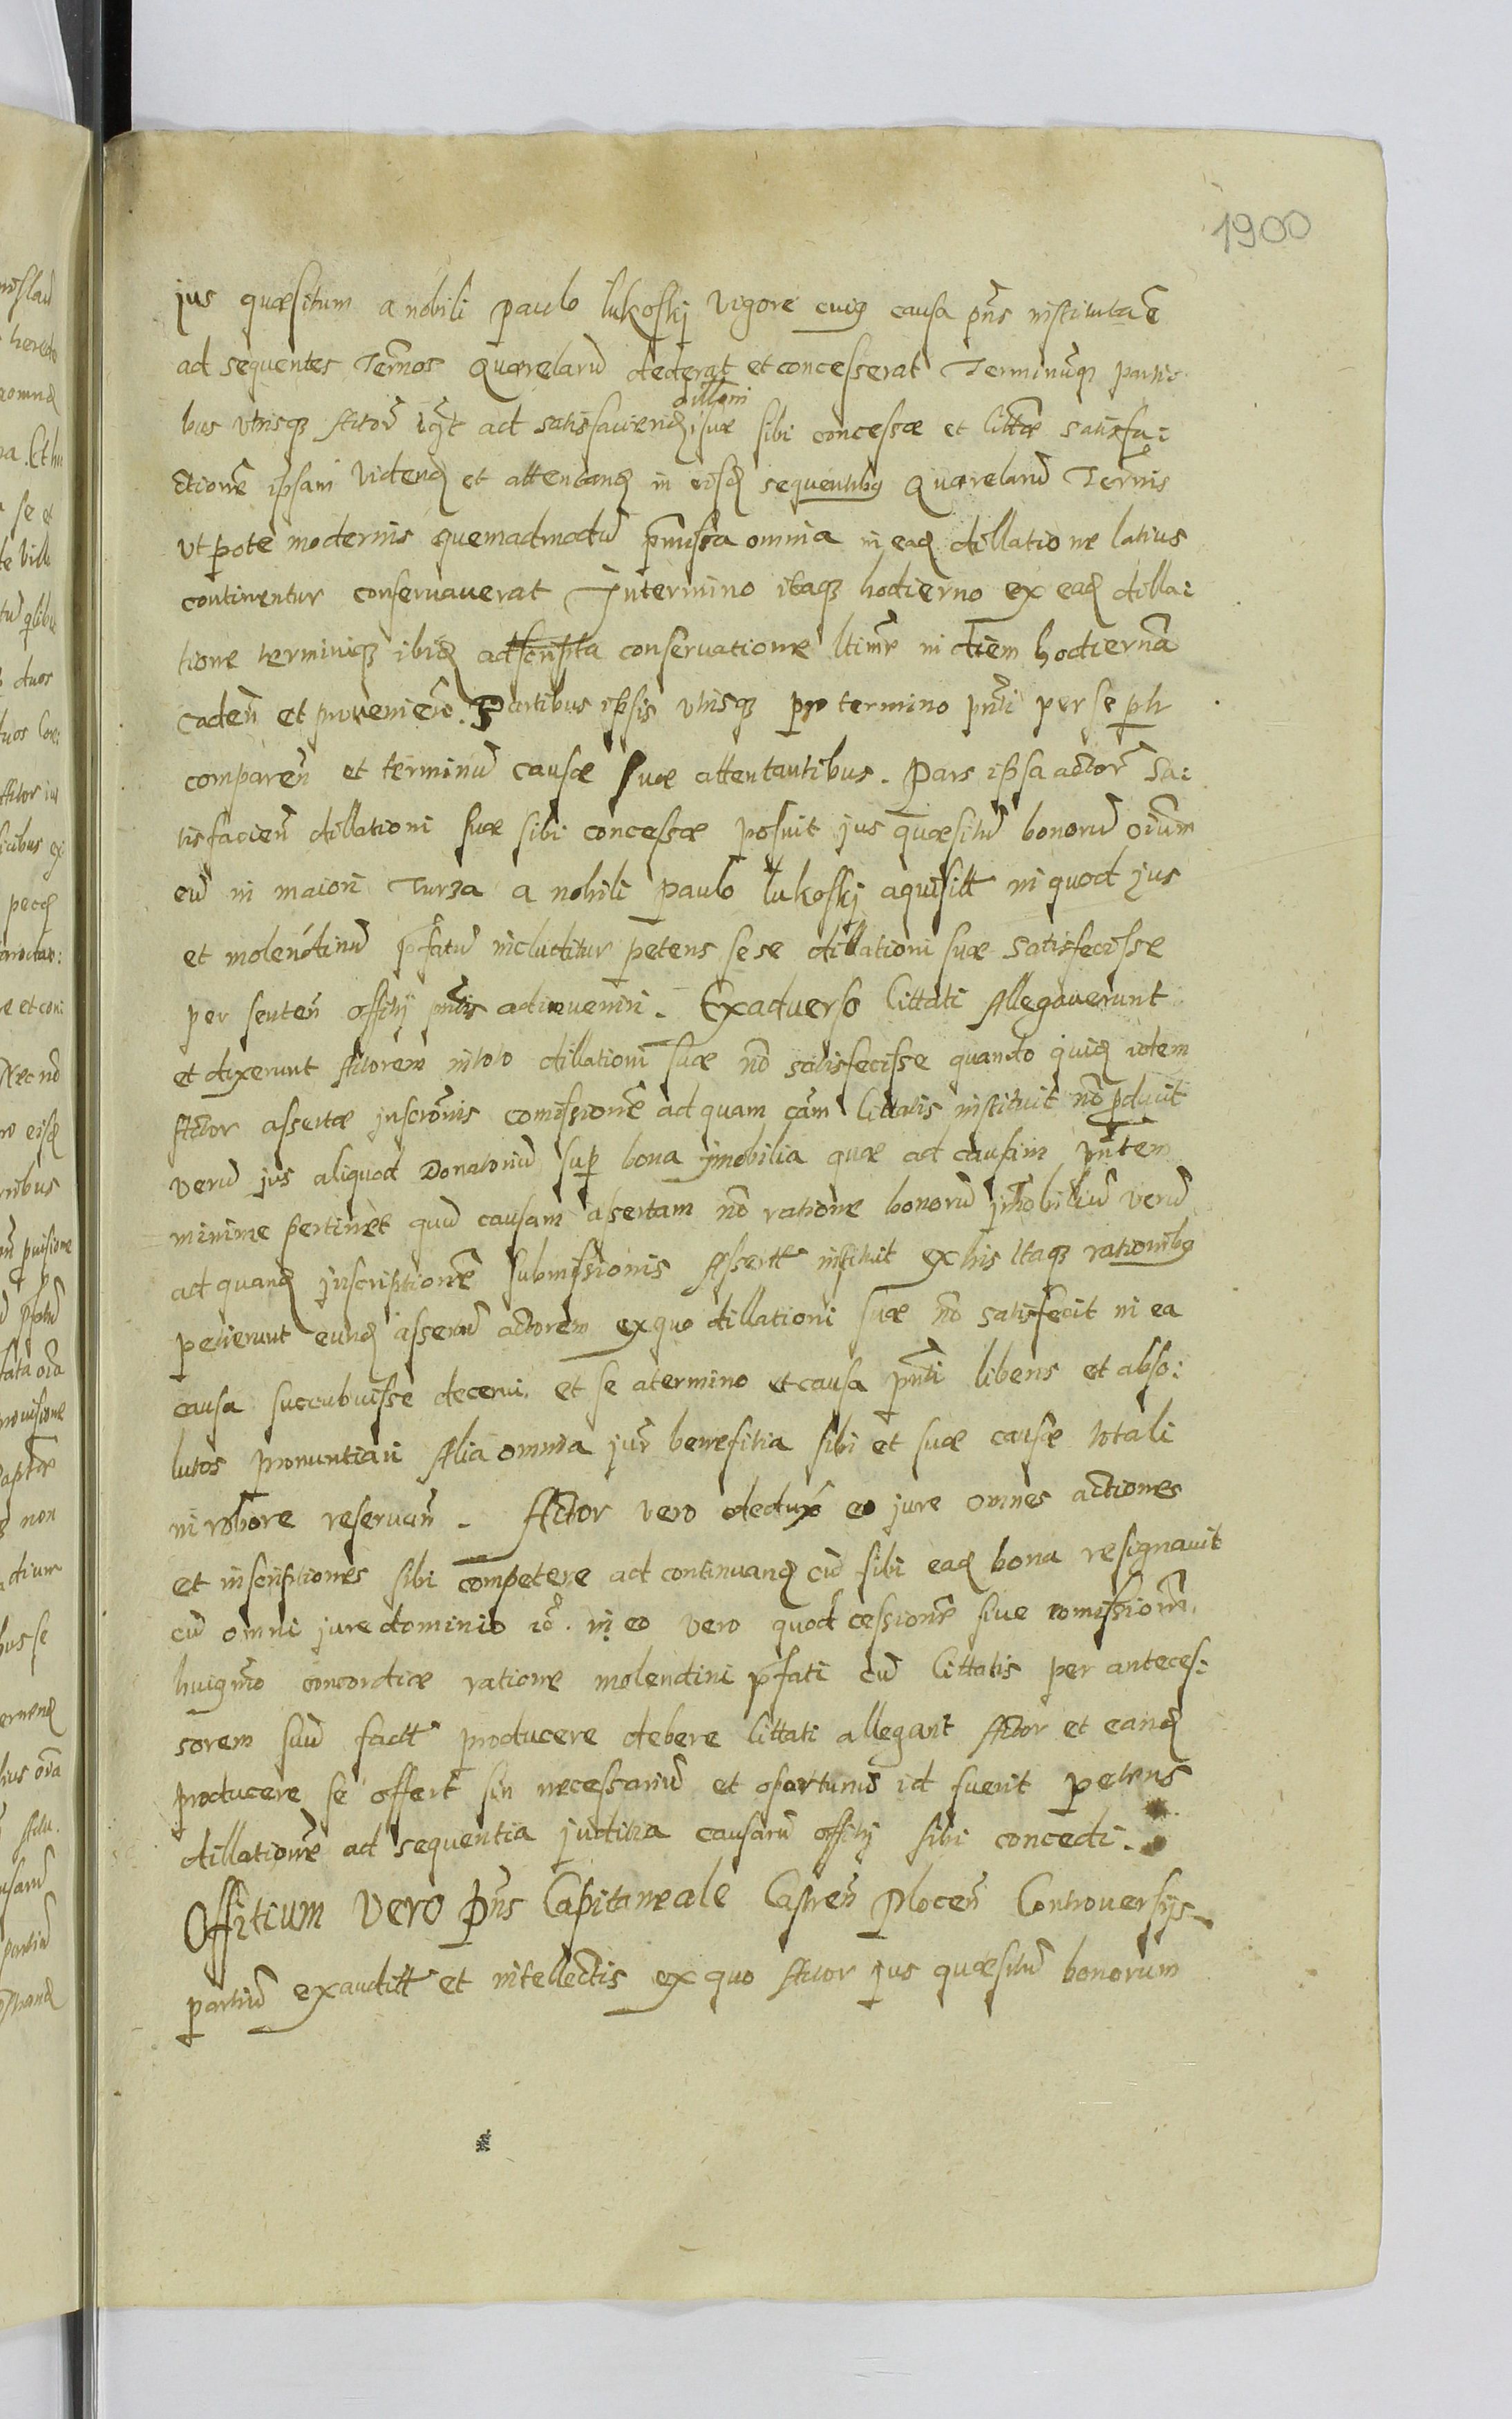 1900
jus quæsitum a nobili paulo lukoskj vigore cuiꝯ causa pn̄s instituta ē
ad sequentes Term̄os Quærelarū dederat et concesserat Terminūqꝫ parti:
bus vtrisqꝫ Actor̄ ad satisfaciend dillōni suæ sibi concessæ et litt̄æ satisfa:
ctionē ipsam vidend et attentand in eisd sequentibꝯ Quærelarū Term̄is
vt pote modernis quemadmodū pm̄issa omnia in ead dillatione latius
continentur conservaverat In termino itaqꝫ hodierno ex ead dilla:
tione terminiqꝫ ibid adscripta conservatione ltim̄e in diem hodiernā
caden̄ et provenien̄. Partibus ipsis vtrisqꝫ pro termino pn̄ti per se plr
comparen̄ et terminū causæ suæ attentantibus. Pars ipsa actor̄ sa:
tisfacien̄ dillationi suæ sibi concessæ posuit jus quæsitū bonorū oīum
eū in maiori Turza a nobili paulo lukoskj aquisitt in quod jus
et molendinū p̄fatū includitur petens sese dillationi suæ satisfecisse
per senten̄ offitij pn̄tis adinveniri. Ex adverso littati Allegaverunt
et dixerunt Actorem in toto dillationi suæ nō satisfecisse quando quid idem
Actor assertæ inscrōnis comissionē ad quam cām littatis instituit nō pducit
verū jus aliquod Donatoriū sup bona jmobilia quæ ad causam pn̄tem
minime pertinēt quū causam asertam nō ratione bonorū jmobiliū verū
ad quand inscriptionē submissionis Assertt instituit ex his itaqꝫ rationibꝯ
petierunt eund assertū actorem ex quo dillationi suæ nō satisfecit in ea
causa succubuisse decerni. et se a termino et causa pn̄ti libens et abso:
lutos pronuntiari Alia omnia jur̄ benefitia sibi et suæ causæ totali
in robore reservan̄. Actor vero dedux̄ eo jure omnes actiones
et inscriptiones sibi competere ad continuand cū sibi ead bona resignavit
cū omni jure dominio iō. in eo vero quod cessionē sive comissionē
huiꝯmō concordiæ ratione molendini p̄fati cū littatis per anteces:
sorem suū factt producere debere littati allegant Actor et eand
producere se offert sin necessariū et oportunū id fuerit petens
dillationē ad sequentia juditia causarū offitij sibi concedi.
Offitium vero pn̄s Capitaneale Castren̄ Plocen̄ Controversijs
partiū exauditt et intellectis ex quo Actor jus quæsitū bonorum